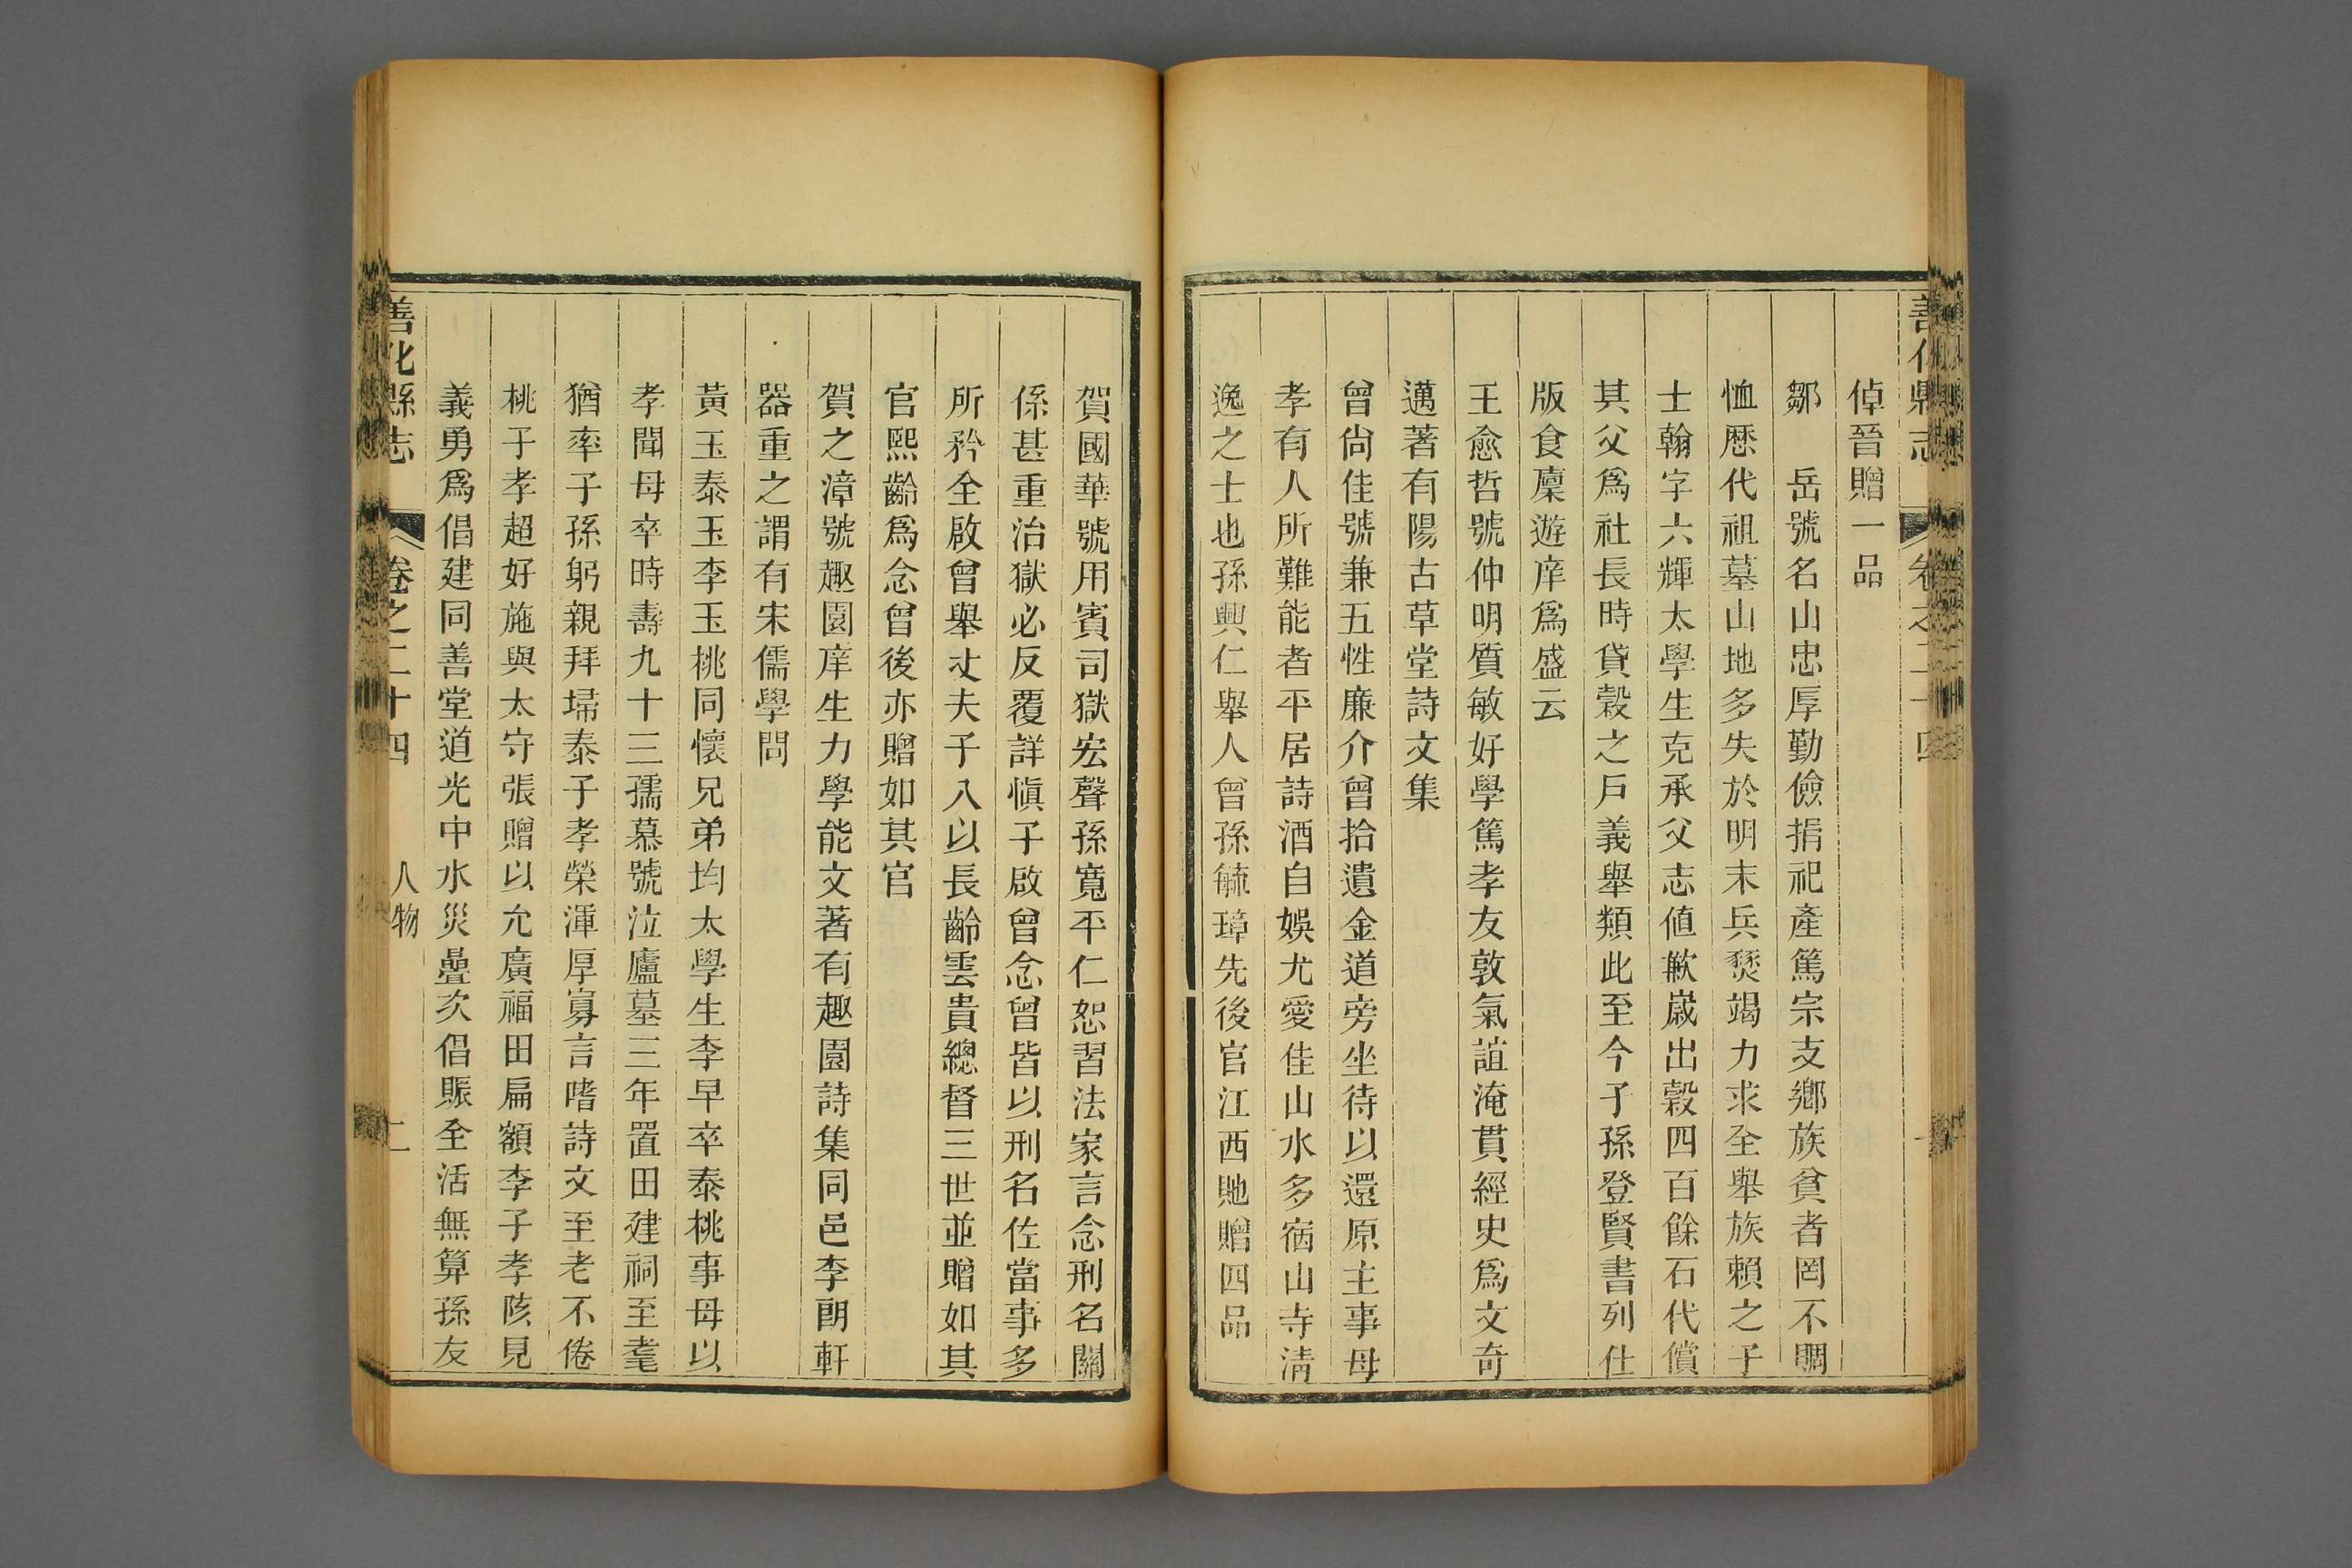 善化縣志 卷之二十四
倬晉贈一品
鄒 岳號名山忠厚勤儉捐祀產篤宗支鄉族貧者罔不賙
恤歷代祖墓山地多失於明末兵燹竭力求全舉族賴之子
士翰字六輝太學生克承父志値歉歲出穀四百餘石代償
其父爲社長時貸穀之戶義舉類此至今子孫登賢書列仕
版食廩遊庠爲盛云
王愈哲號仲明質敏好學篤孝友敦氣誼淹貫經史爲文奇
邁著有陽古草堂詩文集
曾尙佳號兼五性廉介曾拾遺金道旁坐待以還原主事母
孝有人所難能者平居詩酒自娛尤愛佳山水多宿山寺淸
逸之士也孫興仁舉人曾孫毓璋先後官江西貤贈四品
賀國華號用賓司獄宏聲孫寬平仁恕習法家言念刑名關
係甚重治獄必反覆詳愼子啟曾念曾皆以刑名佐當事多
所矜全啟曾舉丈夫子八以長齡雲貴總督三世並贈如其
官熙齡爲念曾後亦贈如其官
賀之漳號趣園庠生力學能文著有趣園詩集同邑李朗軒
器重之謂有宋儒學問
黃玉泰玉李玉桃同懷兄弟均太學生李早卒泰桃事母以
孝聞母卒時壽九十三孺慕號泣廬墓三年置田建祠至耄
猶率子孫躬親拜埽泰子孝榮渾厚寡言嗜詩文至老不倦
桃子孝超好施與太守張贈以允廣福田扁額李子孝陔見
義勇爲倡建同善堂道光中水災曡次倡賑全活無算孫友
善化縣志 卷之二十四 人物 二